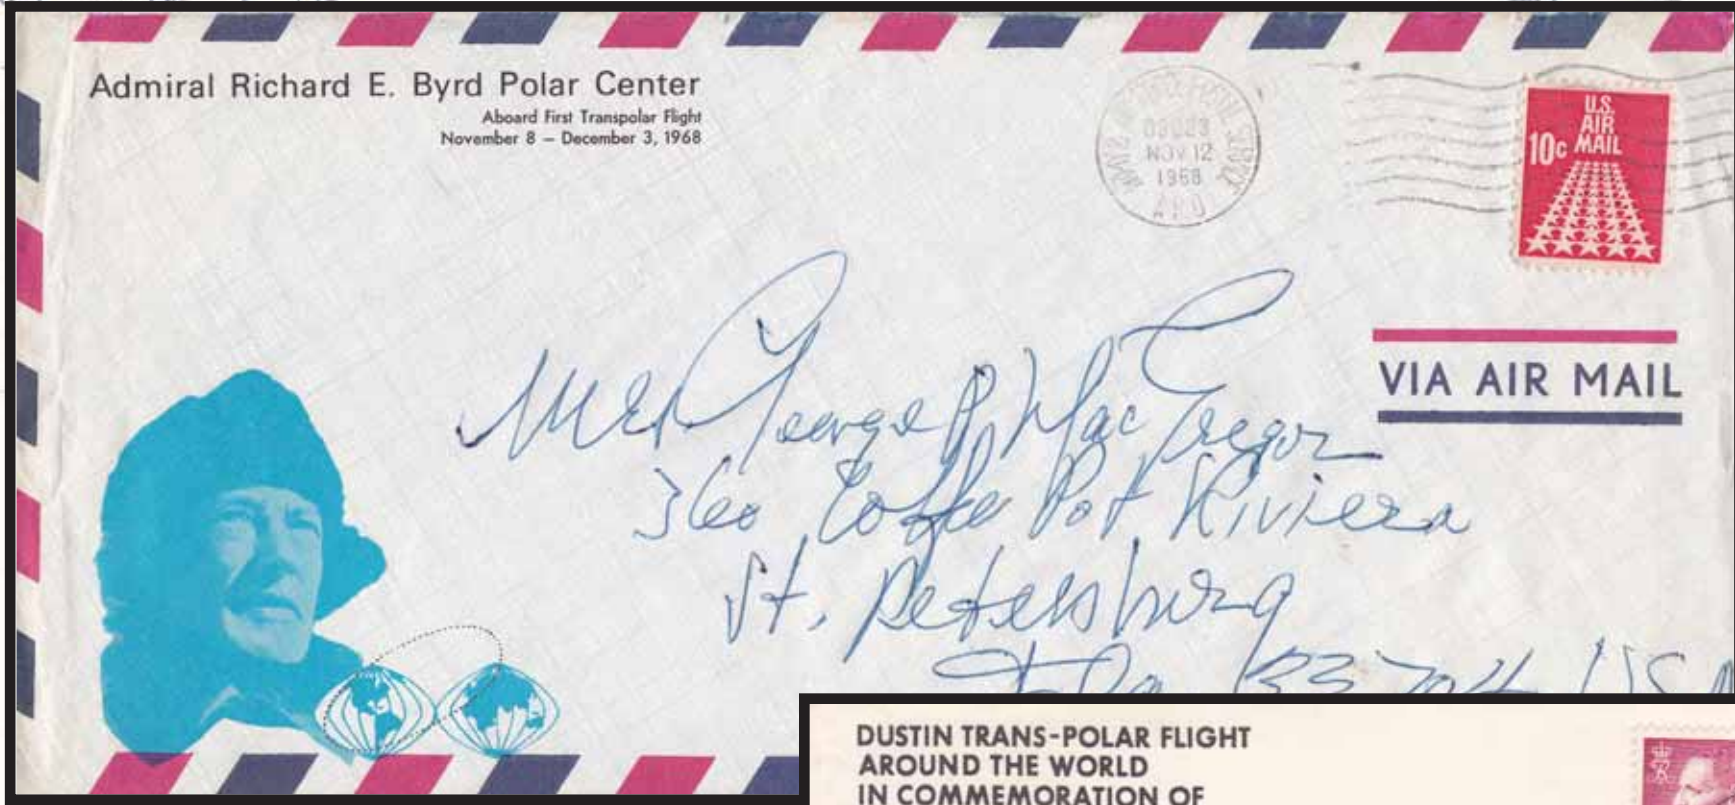 Admiral Richard E. Byrd Polar Center
Aboard First Transpolar Flight
November 8 – December 3, 1968
NOV 12
1968
U.S.
AIR
MAIL
10c
VIA AIR MAIL
George P. MacGregor
360 Coffe Pot Riviera
St. Petersburg
Fla 33704 USA
DUSTIN TRANS-POLAR FLIGHT
AROUND THE WORLD
IN COMMEMORATION OF